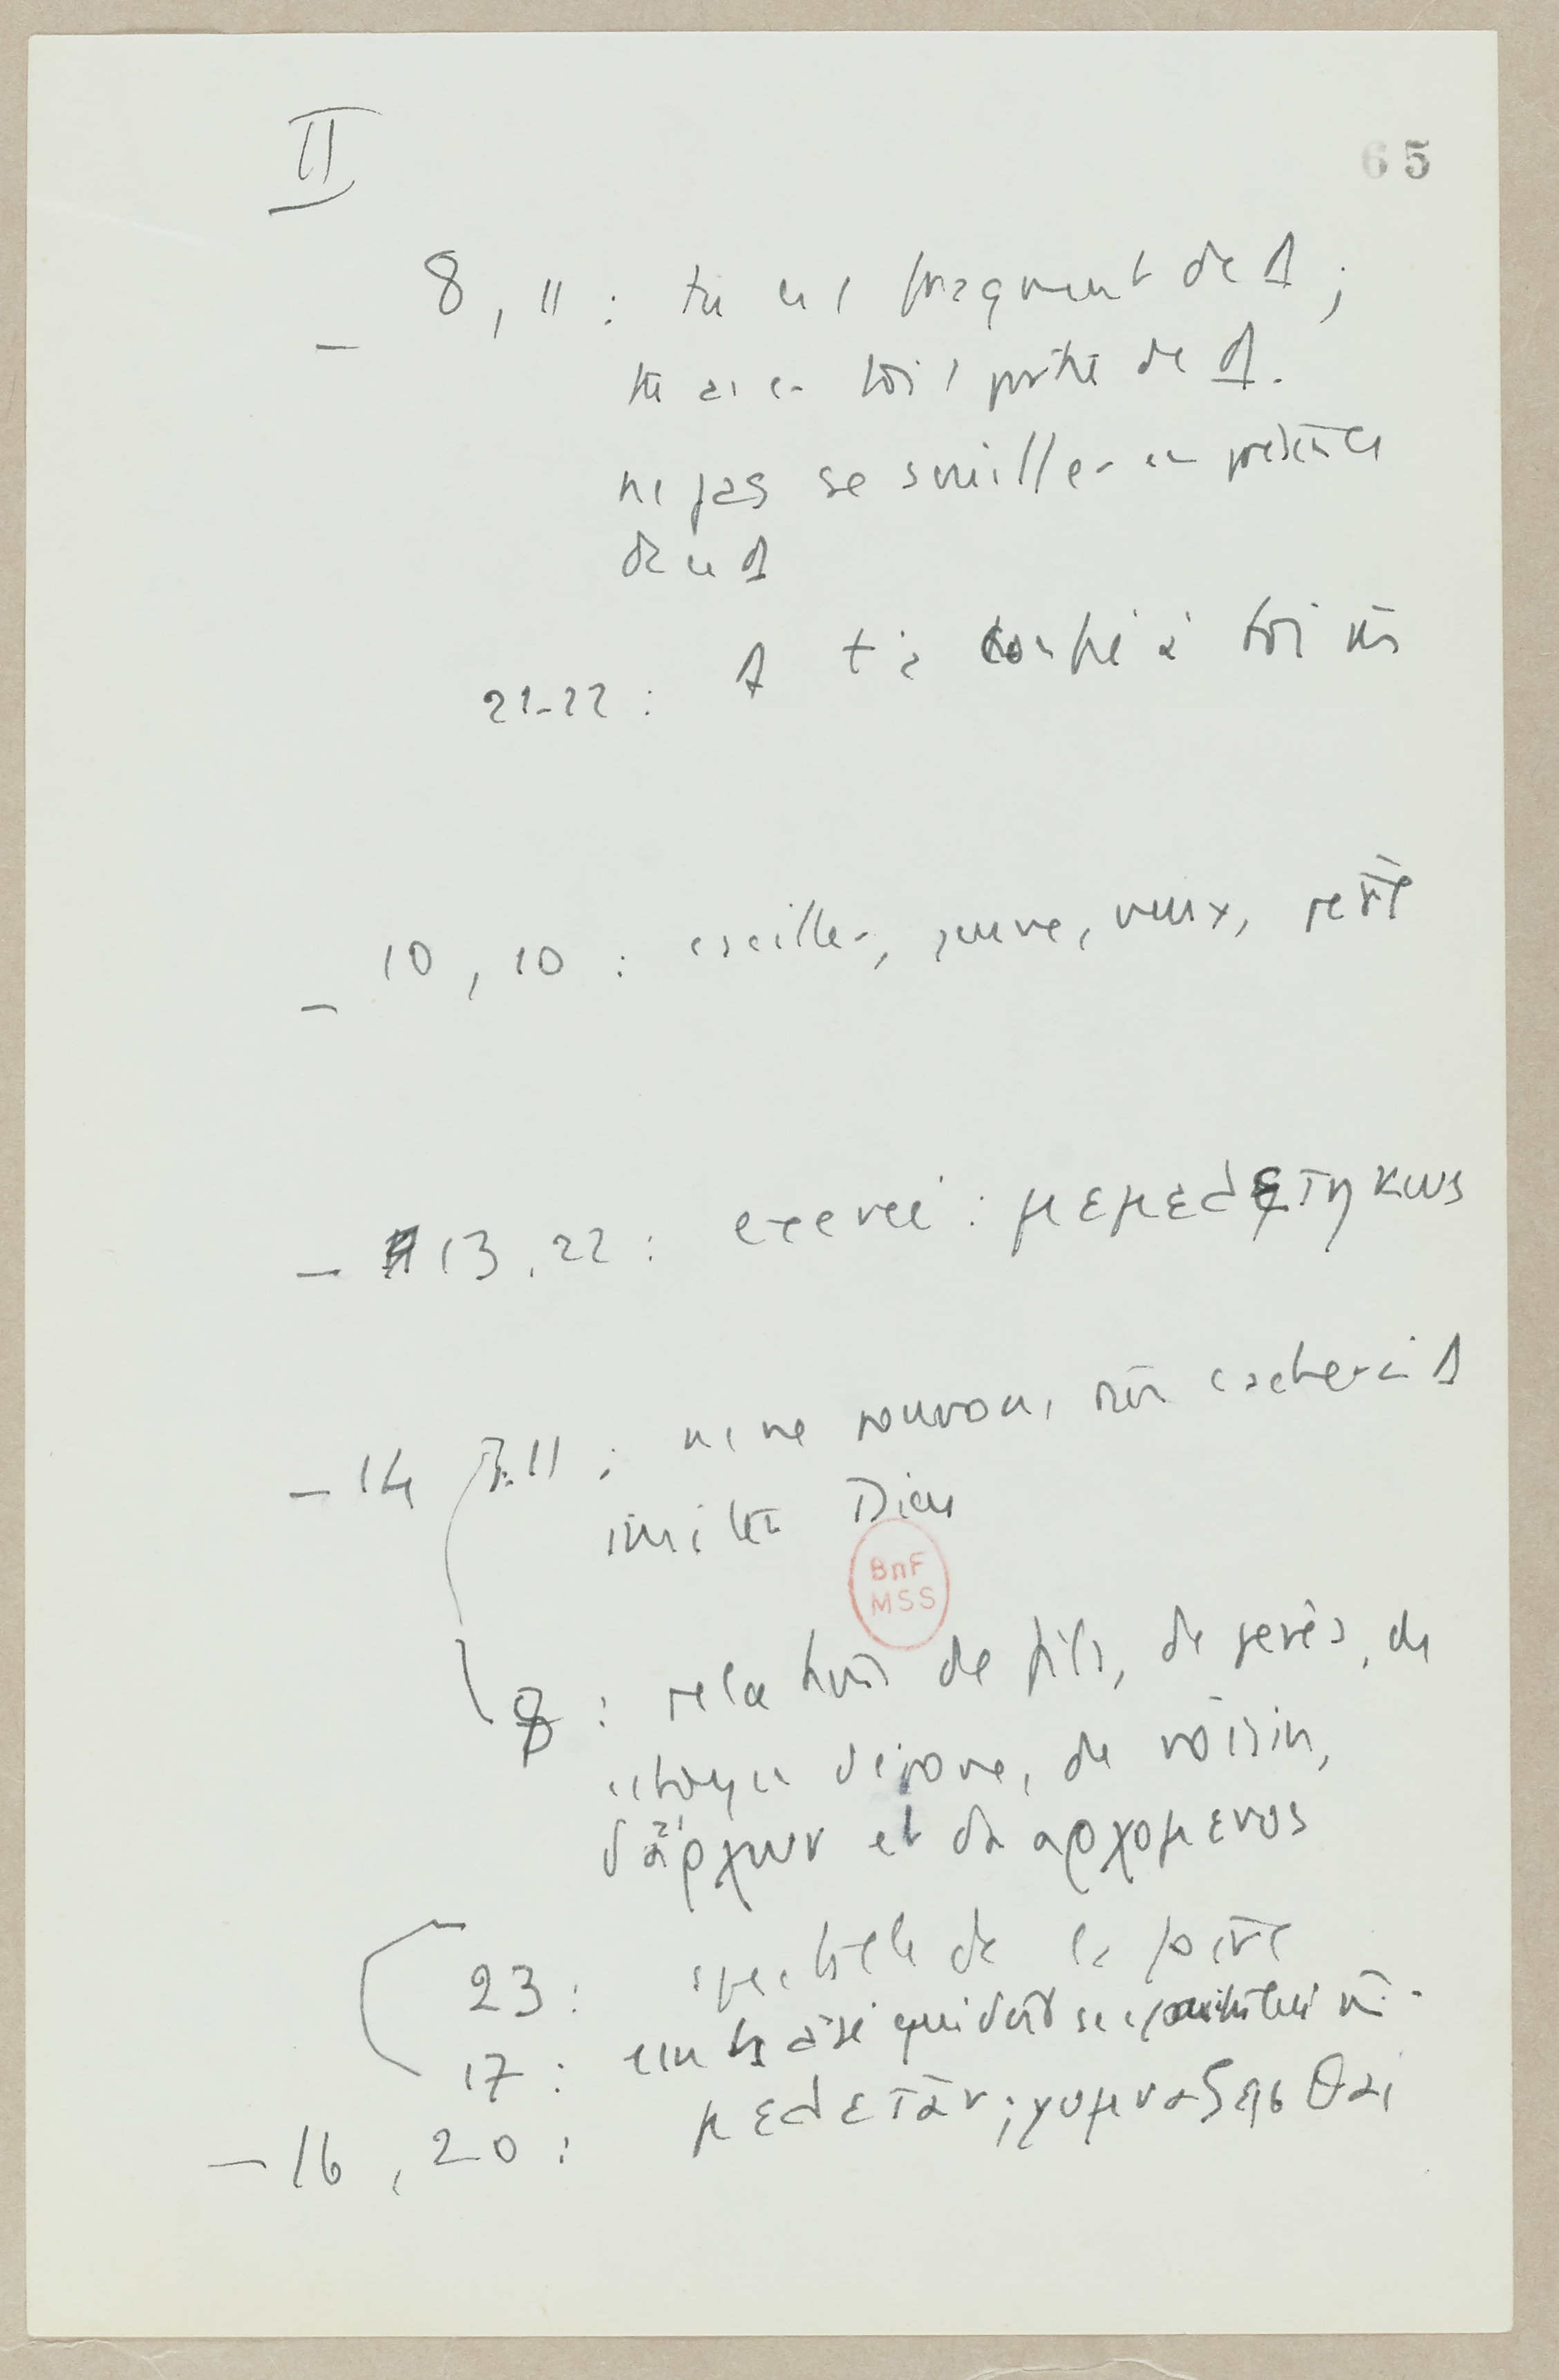 II
65
– 8, 11 : tu es 1 fragment de Δ ;
tu as en toi 1 partie de Δ.
ne pas se souiller en présence
de ce Δ
21-22 : Δ t'a confié à toi m̂
– 10, 10 : conseiller, jeune, vieux, père
– 13, 22 : exercé : μεμελετηκως
– 14 11 : ns ne pouvons rien cacher à Δ
imiter Dieu
8 : relations de fils, de père, de
citoyen d'épouse, de voisin,
d'ἄρχων et de αρχομενος
23 : spectacle de la foire
17 :
– 16, 20 : μελετᾶν ; γυμναζεσθαι
BnF
MSS